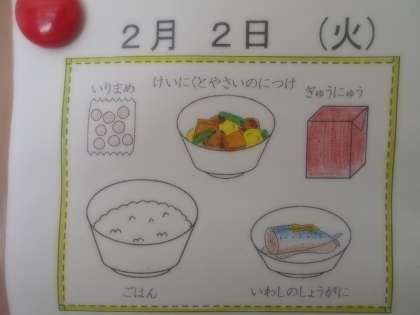 2月 2日 (火)
いりまめ
けいにくとやさいのにつけ
ぎゅうにゅう
ごはん
いわしのしょうがに